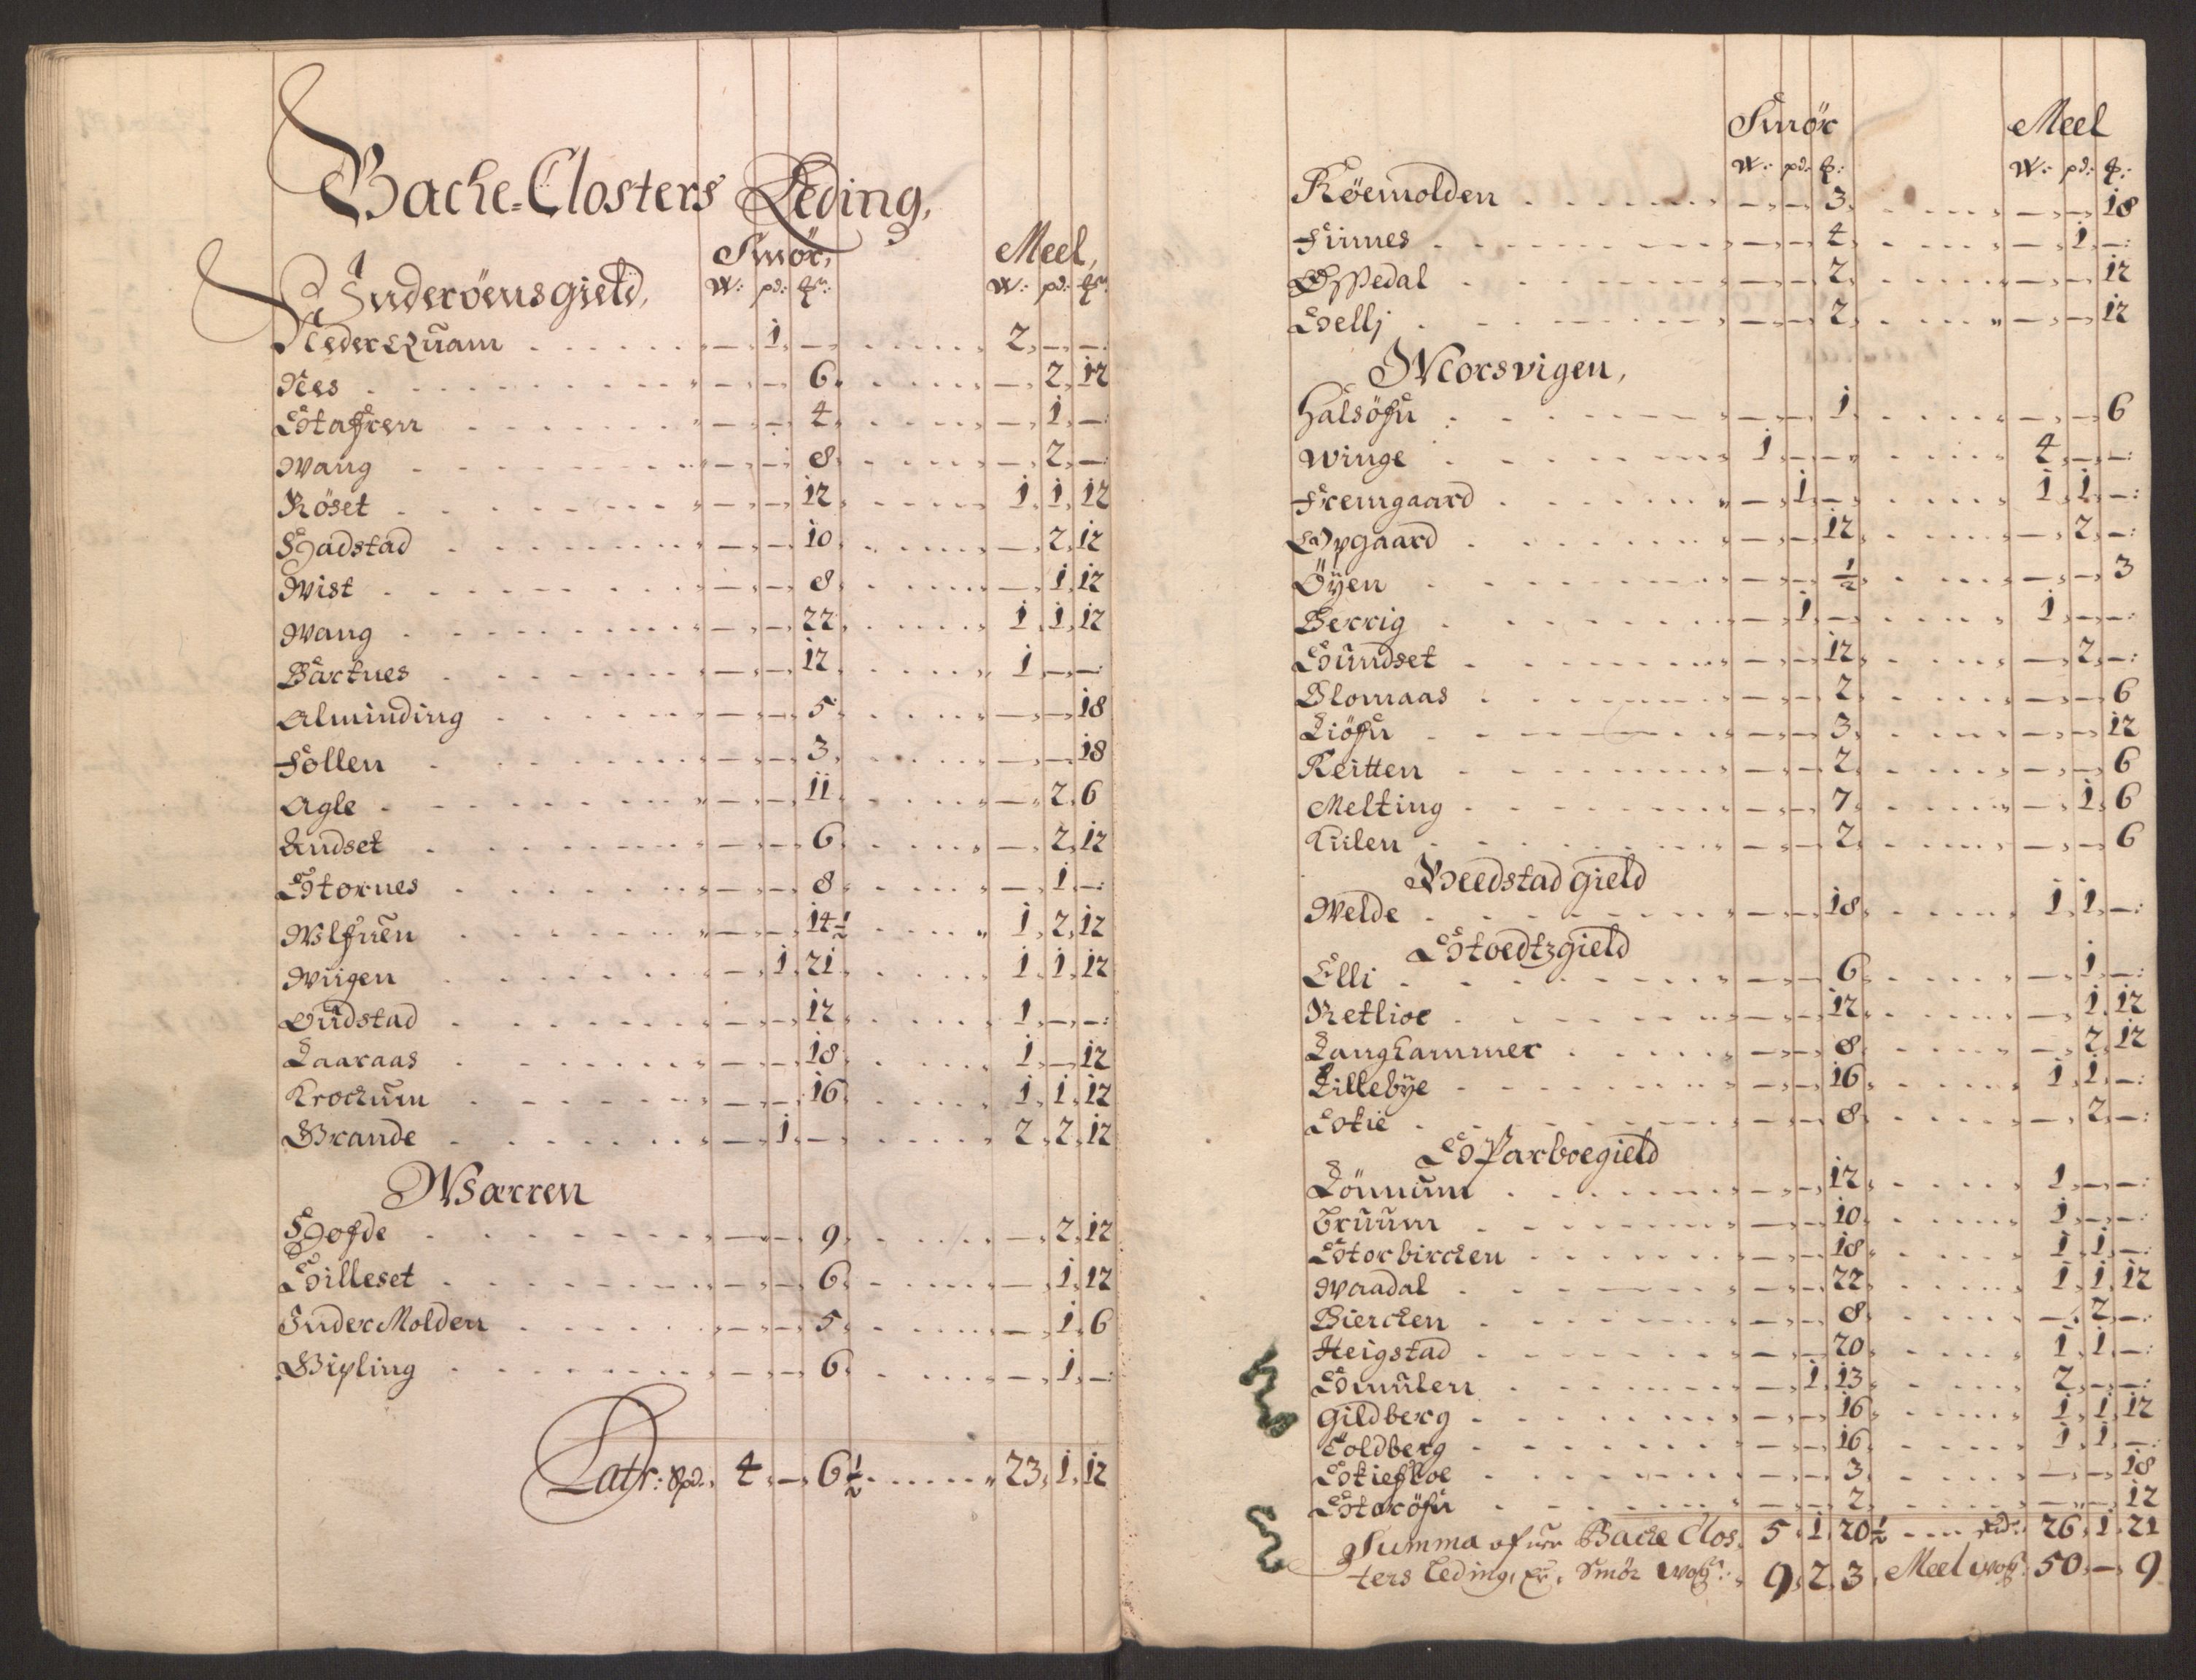 Bache-Closters Leding,
Smör, Meel,
Inderöensgield, W: pd: ℔: W: pd: ℔:
Neder Quam — 1 — 2 — —
Nes — — 6 — 2 12
Staffren — — 4 — 1 —
Wang — — 8 — 2 —
Röset — — 12 1 1 12
Hadstad — — 10 — 2 12
Wist — — 8 — 1 12
Wang — — 22 1 1 12
Bartnes — — 12 1 — —
Alminding — — 5 — — 18
Follen — — 3 — — 18
Agle — — 11 — 2 6
Andset — — 6 — 2 12
Stornes — — 8 — 1 —
Wlfuen — — 14½ 1 2 12
Wiigen — 1 21 1 1 12
Oudstad — — 12 1 — —
Laaraas — — 18 1 — 12
Krockum — — 16 1 1 12
Brande — 1 — 2 2 12
Wærren
Hofde — — 9 — 2 12
Silleset — — 6 — 1 12
Inder Molden — — 5 — 1 6
Bipling — — 6 — 1 —
Latr: 4 — 6½ 23 1 12
Smör Meel
W: pd: ℔: W: pd: ℔:
Röemolden — — 3 — — 18
Finnes — — 4 — 1 —
Opedal — — 2 — — 12
Sellj — — 2 — — 12
Morsvigen,
Halsöfu — — 1 — — 6
Winge 1 — — 4 — —
Fremgaard — 1 — 1 1 —
Opgaard — — 12 — 2 —
Öyen — — ½ — — 3
Berrig — 1 — 1 — —
Sundset — — 12 — 2 —
Blomaas — — 2 — — 6
Liöfu — — 3 — — 12
Reitten — — 2 — — 6
Melting — — 7 — 1 6
Kiilen — — 2 — — 6
Beedstad gield
Welde — — 18 1 1 —
Stoedtzgield
Elli — — 6 — 1 —
Retlioe — — 12 — 1 12
Langhammer — — 8 — 2 12
Lillebÿe — — 16 1 1 —
Skie — — 8 — 2 —
Sparboegield
Lönnum — — 12 1 — —
Truum — — 10 1 — —
Storbircken — — 18 1 1 —
Waadal — — 22 1 1 12
Biercken — — 8 — 2 —
Heigstad — — 20 1 1 —
Smulen — 1 13 2 — —
Gildberg — — 16 1 1 12
Toldberg — — 16 1 1 —
Skiefloe — — 3 — — 18
Staröfu — — 2 — — 12
Summa af Bache Clos 5 1 20½ 26 1 21
ters Leding, Smör wog: 9 2 3 Meel wog: 50 — 9